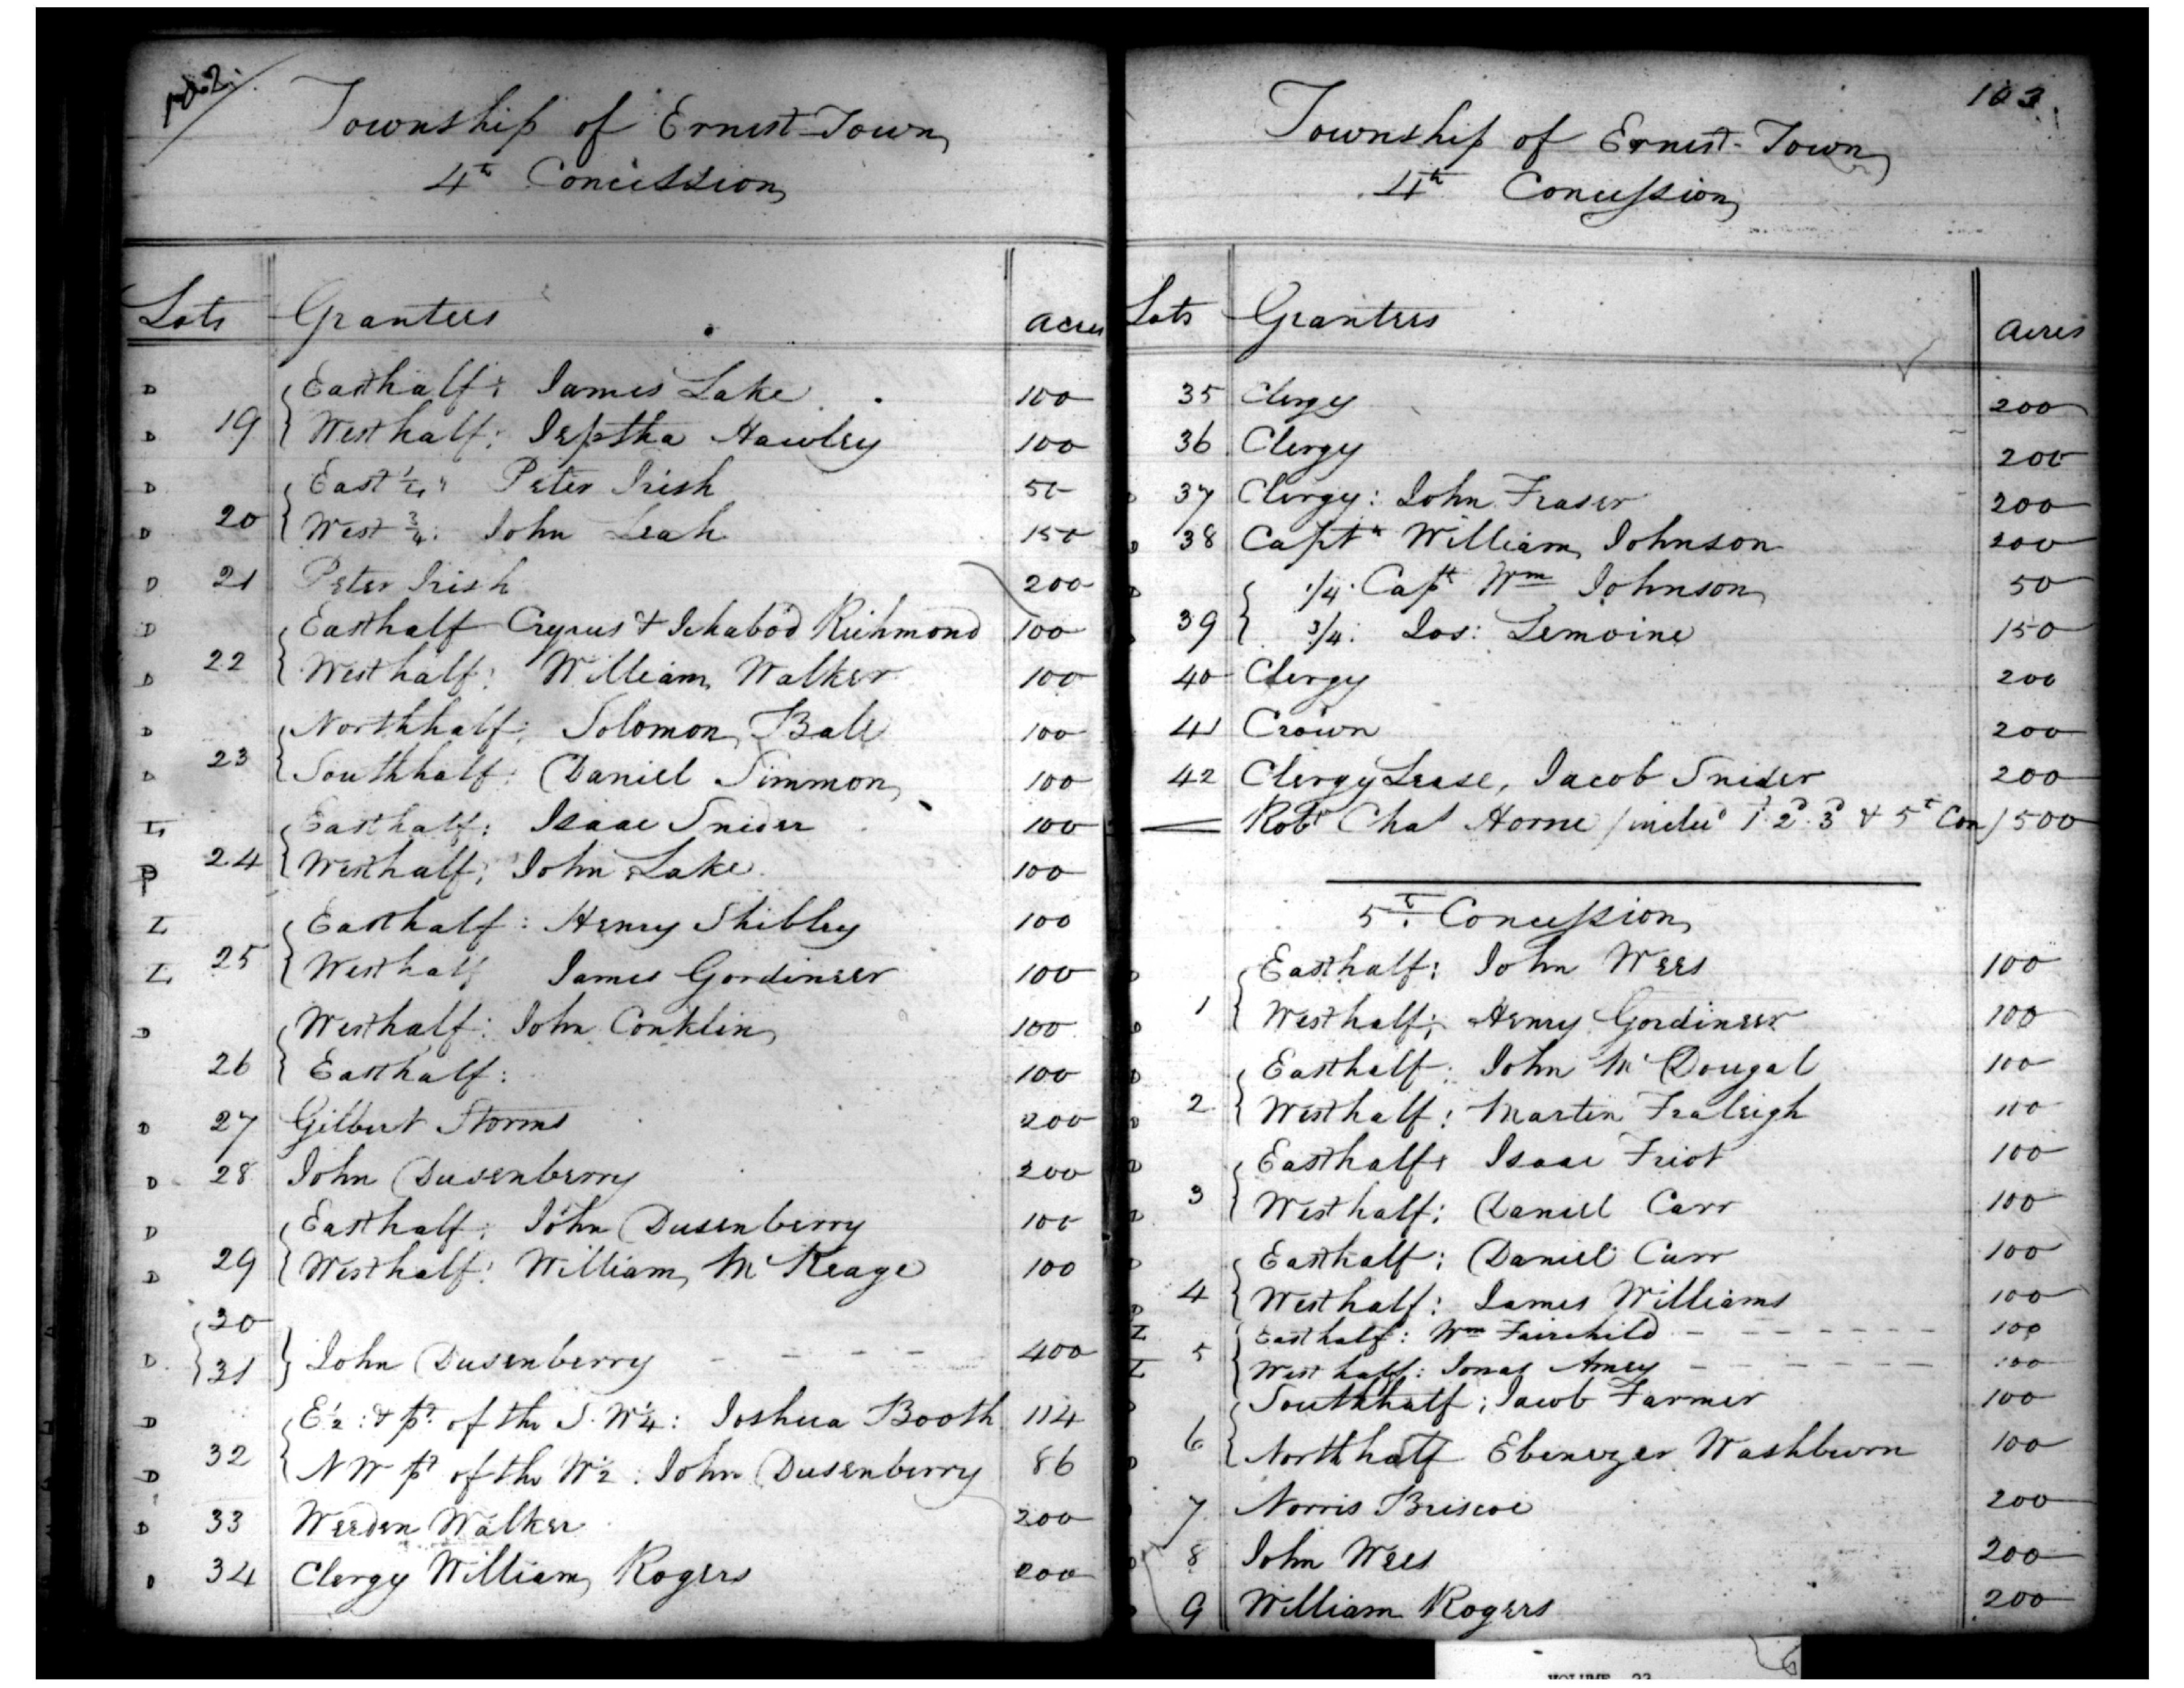 102.
Township of Ernest-Town
4th Concession
Lots Grantees Acres
D Easthalf: James Lake 100
D 19 Westhalf: Jeptha Hawley 100
D East 1/4: Peter Irish 50
D 20 West 3/4: John Leah 150
D 21 Peter Irish 200
D Easthalf Cyrus & Ichabod Richmond 100
D 22 Westhalf: William Walker 100
D Northhalf: Solomon Ball 100
D 23 Southhalf: Daniel Simmon 100
L Easthalf: Isaac Snider 100
D 24 Westhalf: John Lake 100
L Easthalf: Henry Shibley 100
L 25 Westhalf James Gordineer 100
D Westhalf: John Conklin 100
26 Easthalf: 100
D 27 Gilbert Storms 200
D 28 John Dusenberry 200
D Easthalf: John Dusenberry 100
D 29 Westhalf: William McKeage 100
30
D 31 John Dusenberry - - - - 400
D E 1/2: & pt. of the S. W 1/4: Joshua Booth 114
D 32 N W pt of the W 1/2: John Dusenberry 86
D 33 Weeden Walker 200
D 34 Clergy William Rogers 200
103.
Township of Ernest-Town
4th Concession
Lots Grantees Acres
35 Clergy 200
36 Clergy 200
D 37 Clergy: John Fraser 200
D 38 Captn William Johnson 200
D 1/4. Capt Wm Johnson 50
39 3/4: Jos: Lemoine 150
40 Clergy 200
41 Crown 200
42 Clergy Lease, Jacob Snider 200
Robt Chas Horne /includ 1. 2. 3 & 5t Con/ 500
5t Concession
D Easthalf: John Wees 100
D 1 Westhalf; Henry Gordineer 100
D Easthalf: John McDougal 100
D 2 Westhalf: Martin Fraleigh 100
D Easthalf: Isaac Friot 100
D 3 Westhalf: Daniel Carr 100
D Easthalf: Daniel Carr 100
D 4 Westhalf: James Williams 100
L Easthalf: Wm Fairchild - - - - - - 100
L 5 West half: Jonas Amey - - - - - - 100
D Southhalf: Jacob Farmer 100
D 6 Northhalf Ebenezer Washburn 100
7 Norris Briscoe 200
D 8 John Wees 200
D 9 William Rogers 200
VOLUME 23